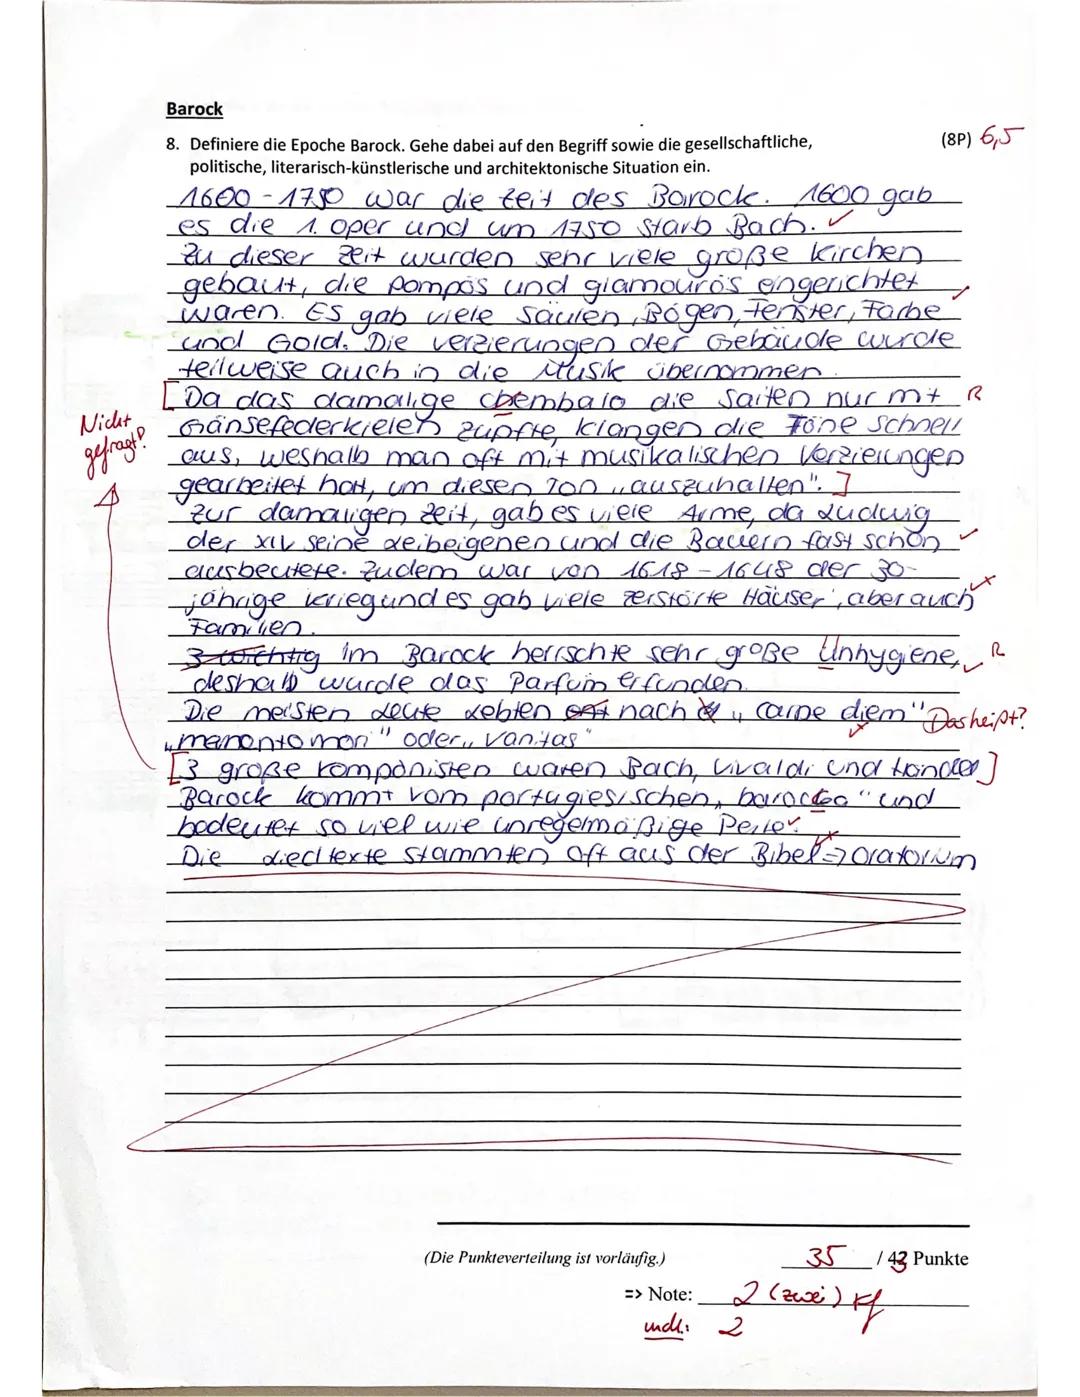 Barock
8. Definiere die Epoche Barock. Gehe dabei auf den Begriff sowie die gesellschaftliche, (8P) 6,5
politische, literarisch-künstlerische und architektonische Situation ein.
1600-1750 war die Zeit des Barock. 1600 gab
es die 1. Oper und um 1750 starb Bach. ✓
Zu dieser Zeit wurden sehr viele große Kirchen
gebaut, die pompös und glamourös eingerichtet
waren. Es gab viele Säulen, Bögen, Fenster, Farbe ✓
und Gold. Die Verzierungen der Gebäude wurde
teilweise auch in die Musik übernommen.
[Da das damalige Chembalo die Saiten nur mit R
Nicht gefragt? Gänsefederkielen zupfte, klangen die Töne schnell
aus, weshalb man oft mit musikalischen Verzierungen
gearbeitet hat, um diesen Ton „auszuhalten".]
Zur damaligen Zeit, gab es viele Arme, da Ludwig
der XIV seine Leibeigenen und die Bauern fast schon ✓
ausbeutete. Zudem war von 1618-1648 der 30-
jährige Krieg und es gab viele zerstörte Häuser, aber auch
Familien.
Im Barock herrschte sehr große Unhygiene, ✓ R
deshalb wurde das Parfüm erfunden.
Die meisten Leute lebten nach „carpe diem" Das heißt?
„memontomori" oder „Vanitas"
[3 große Komponisten waren Bach, Vivaldi und Händel]
Barock kommt vom portugiesischen „barocco" und
bedeutet so viel wie unregelmäßige Perle. ✓
Die Liedtexte stammten oft aus der Bibel => Oratorium
(Die Punkteverteilung ist vorläufig.) 35 / 43 Punkte
=> Note: 2 (zwei)
mdl.: 2